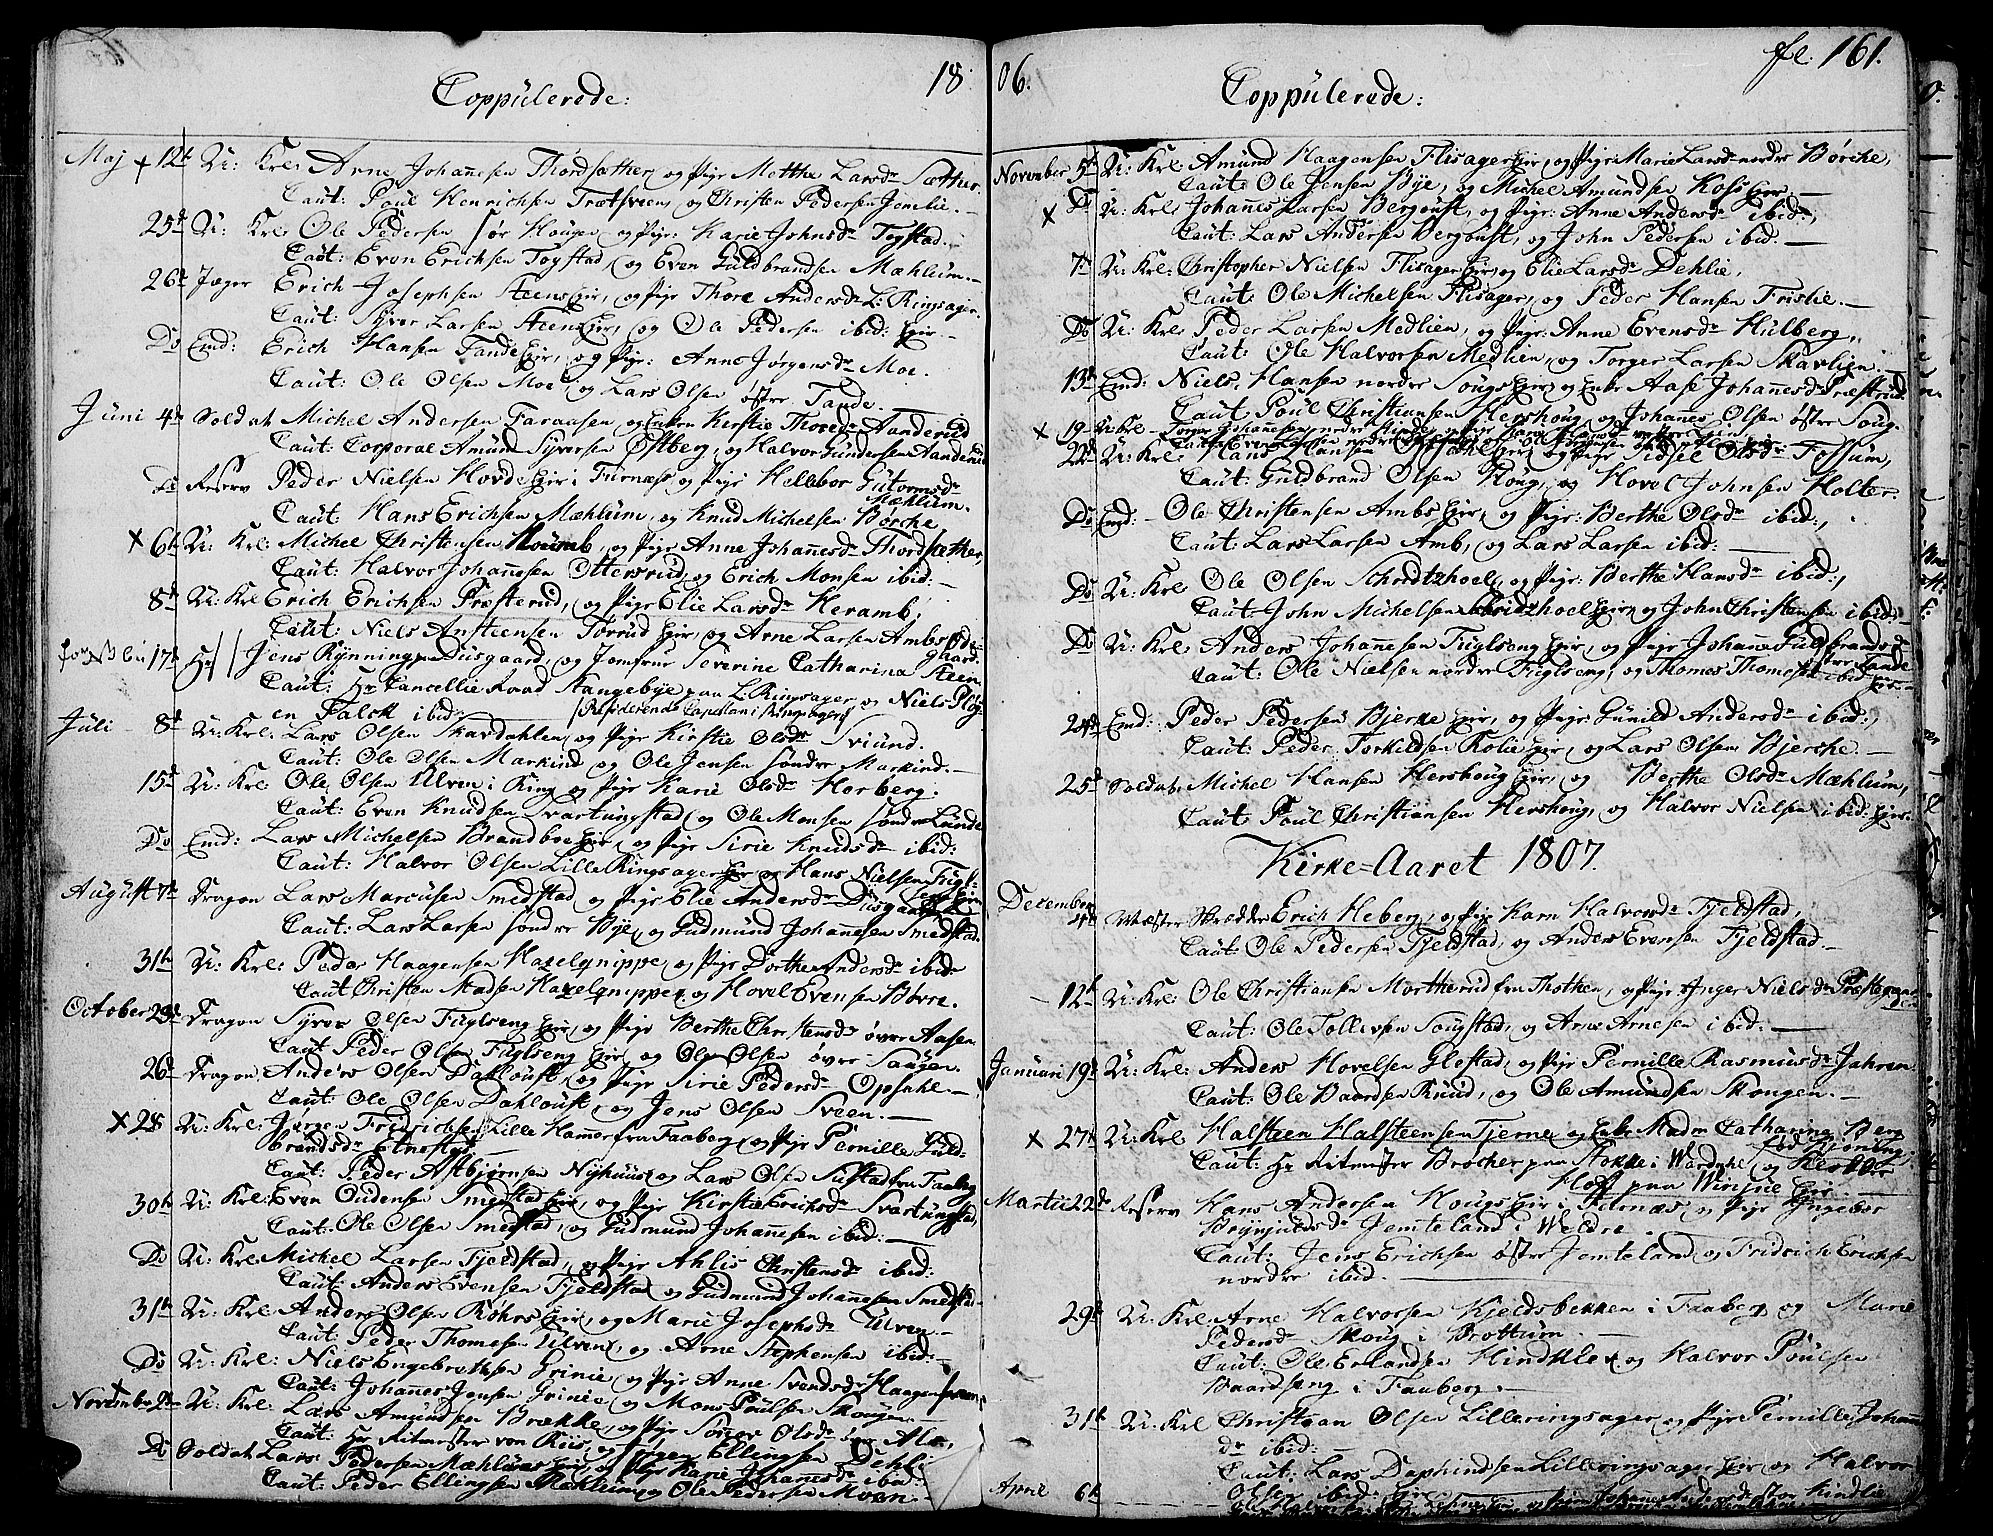 18
Coppulerede:
Maj 12te U: Krl: Arne Johannesen Thordsæther, og Pige Matthe Larsdr Sæther.
Caut: Poul Henrichsen Trætsveen, og Christen Pedersen Jemlie.
25de U: Krl: Ole Pedersen sør Hougen, og Pige: Karie Johnsdr Togstad.
Caut: Even Erichsen Togstad, og Even Guldbrandsen Mæhlum.
26de Jæger Erich Josephsen Steens Eier, og Pige Thore Andersdr L: Ringsager.
Caut: Syver Larsen Steen Eier, og Ole Pedersen ibid: Eier.
Do Emd: Erich Hansen Tande Eier, og Pige: Anne Jørgensdr Moe.
Caut: Ole Olsen Moe, og Lars Olsen østre Tande.
Juni 4de Soldat Michel Andersen Faraasen, og Enken Kirstie Thoresdr Aanderud
Caut: Corporal Amund Syversen Østberg, og Halvor Gundersen Aanderud
Do Reserv Peder Nielsen Hovde Eier i Furnæs og Pige Hellebor Gutormsdr
Mæhlum.
Caut: Hans Erichsen Mæhlum, og Knud Michelsen Børche,
x 6te U: Krl: Michel Christensen, og Pige Anne Johannesdr Thordsæther,
Caut: Halvor Johannesen Ottersrud, og Erich Monsen ibid:
8de U: Krl Erich Erichsen Præsterud, og Pige Elie Larsdr Heramb,
Caut: Niels Ansteensen Torrud Eier, og Arne Larsen Ambs Øde-
gaard.
17de Hr Jens Rynning paa Dusgaard, og Jomfrue Severine Catharina Steen.
Caut: Hr Cancellie Raad Stangebye paa L: Ringsager og Niels Plog-
en Falck ibid: Residerende Capellan i Ringsager
Juli 8de U: Krl: Lars Olsen Skardahlen, og Pige Kirstie Olsdr Sviund.
Caut: Ole Olsen Markind og Ole Jensen søndre Markind.
15de U: Krl: Ole Olsen Ulven i Ring og Pige Karie Olsdr Horberg.
Caut: Even Knudsen Svartungstad, og Ole Monsen søndre Lunde
Do Emd: Lars Michelsen Brandboe Eier, og Pige Sirie Knudsdr ibid:
Caut: Halvor Olsen Lille Ringsager Eier og Hans Nielsen Fugl-
August 7de Dragon Lars Marcusen Smedstad, og Pige Elie Andersdr Dusgaard
Caut: Lars Larsen søndre Bye, og Gudmund Johannesen Smedstad.
31te U: Krl: Peder Haagensen Haselqnippe, og Pige Dorthe Andersdr ibid:
Caut Christen Madsen Haselqnippe, og Hovel Evensen Børre.
October 23de Dragon Syver Olsen Fuglseng Eier, og Pige Berthe Christensdr øvre Aasen
Caut Peder Olsen Fuglseng Eier, og Ole Olsen øvre Saugen.
26de Dragon, Anders Olsen Dahloust, og Pige Sirie Pedersdr Opsahl.
Caut: Ole Olsen Dahloust, og Jens Olsen Sveen.
x 28 U: Krl: Jørgen Fridrichsen Lille Hammer fra Faaberg, og Pige Pernille Guld-
brandsdr Etnestad
Caut: Peder Asbjørnsen Nyhuus, og Lars Olsen Sustad fra Faaberg
30te U: Krl: Even Oudensen Smedstad Eier, og Pige Kirstie Erichsdr Svartungstad,
Caut: Ole Olsen Smedstad, og Gudmund Johannesen ibid:
Do U: Krl: Michel Larsen Fjeldstad, og Pige Ahlis Christensdr ibid:
Caut: Anders Evensen Fjeldstad, og Gudmund Johannesen Smedstad.
31te U: Krl: Anders Olsen Røhrs Eier, og Marie Josephsdr Ulven.
Caut: Peder Thomesen Ulven, og Arne Stephensen ibid:
Do U: Krl: Niels Engebretsen Grinie, og Pige Anne Svendsdr Haagensveen
Caut: Johannes Jensen Grinie, og Mons Poulsen Skougen.
November 2den U: Krl: Lars Amundsen Brække, og Pige Søren Olsdr
Caut: Hr Ritmester von Riis, og Jørgen Ellingsen Dehli
Do Soldat Lars Pedersen Mæhlums Eier, og Pige Karie Johannesdr ibid:
Caut: Peder Ellingsen Mæhlum, og Ole Pedersen Moen
06.
fl: 161.
Coppulerede:
November 5te U: Krl: Amund Haagensen Flisager Eier, og Pige Marie Larsdr nordre Børche,
Caut: Ole Jensen Bye, og Michel Amundsen Koss Eier.
x Do U: Krl: Johannes Larsen Bergoust, og Pige: Anne Andersdr ibid:,
Caut: Lars Andersen Bergoust, og John Pedersen ibid.
7de U: Krl: Christopher Nielsen Flisager Eier, og Elie Larsdr Dehlie,
Caut: Ole Michelsen Flisager, og Peder Hansen Frislie.
Do U: Krl: Peder Larsen Medlien, og Pige: Anne Evensdr Hulberg,
Caut: Ole Halvorsen Medlien, og Torger Larsen Skavlien.
13de Emd: Niels Hansen nordre Sougs Eier, og Enke Aase Johannesdr Præsterud
Caut Poul Christiansen Hershoug, og Johannes Olsen østre Soug.
x 19 U: Krl Torger Johannesen
22de U: Krl: Hans Hansen Opsahl Eier, og Pige Sidsel Olsdr Fossum,
Caut: Guldbrand Olsen Houg, og Hovel Johnsen Holter.
Do Emd: Ole Christensen Ambs Eier, og Pige: Berthe Olsdr ibid:,
Caut: Lars Larsen Amb, og Lars Larsen ibid:
Do U: Krl Ole Olsen Schredtzhoel, og Pige: Berthe Hansdr ibid:,
Caut John Michelsen Schridtzhoel Eier, og John Christensen ibid:
Do U: Krl: Anders Johannesen Fuglseng Eier, og Pige Johanne Guldbrandsdr
østre Tande
Caut: Ole Nielsen nordre Fuglseng, og Thomes Thomesen ibid: Eier.
24de Emd: Peder Pedersen Bjerke Eier, og Pige: Gunild Andersdr ibid:,
Caut: Peder Torkildsen Kolie Eier, og Lars Olsen Bjerche.
25de Soldat: Michel Hansen Hershoug Eier, og Berthe Olsdr Mæhlum,
Caut Poul Christiansen Hershoug, og Halvor Nielsen ibid: Eier.
Kirke-Aaret 1807.
December 4de Mæster Skrædder Erich Heberg, og Pige Karn Halvorsdr Fjeldstad,
Caut: Ole Pedersen Fjeldstad, og Anders Evensen Fjeldstad.
12te U: Krl: Ole Christiansen Mortherud fra Thothen, og Pige Inger Nielsdr Præsterud-
Caut: Ole Tollevsen Sougstad, og Arne Arnesen ibid:
Januari 19de U: Krl: Anders Hovelsen Glestad, og Pige Pernille Rasmusdr Jahren
Caut: Ole Baardsen Knud, og Ole Amundsen Skougen.
x 27de U: Krl Halsteen Halsteensen Tjerne, og Enke Madm Catharine Berg
fød Hjøring,
Caut: Hr Ritmester Brøcher paa Stokke i Wardahl, og Klokker
Hoff paa Windjue Eier.
Martii 22de Reserv Hans Andersen Hougs Eier i Furnæs, og Pige Ingebor
Brynjulsdr Jemteland i Weldre.
Caut: Jens Erichsen østre Jemteland, og Fridrich Erichsen
nordre ibid.
29de U: Krl: Arne Halvorsen Kjeldsbekken i Faaberg, og Marie
Pedersdr Skoug i Brøttum.
Caut: Ole Erlandsen Hindklev, og Halvor Poulsen
Baardseng i Faaberg.
31te U: Krl Christian Olsen Lilleringsager, og Pige Pernille Johannes-
dr ibid:
Caut: Lars Daphindsen Lilleringsager Eier, og Halvor
Olsen ibid: Eier.
April 6te